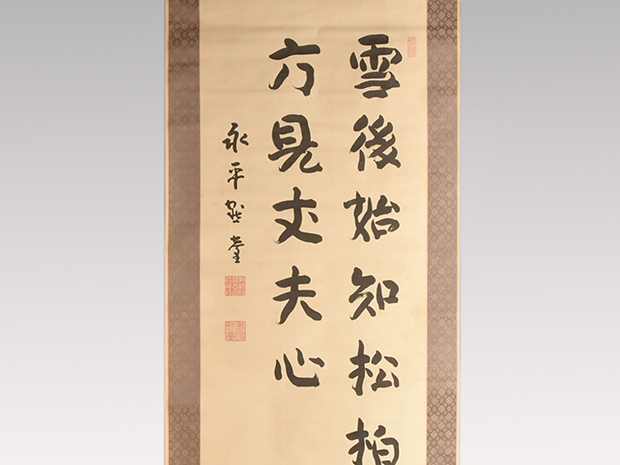 雪後始知松柏
方見丈夫心
永平黙童